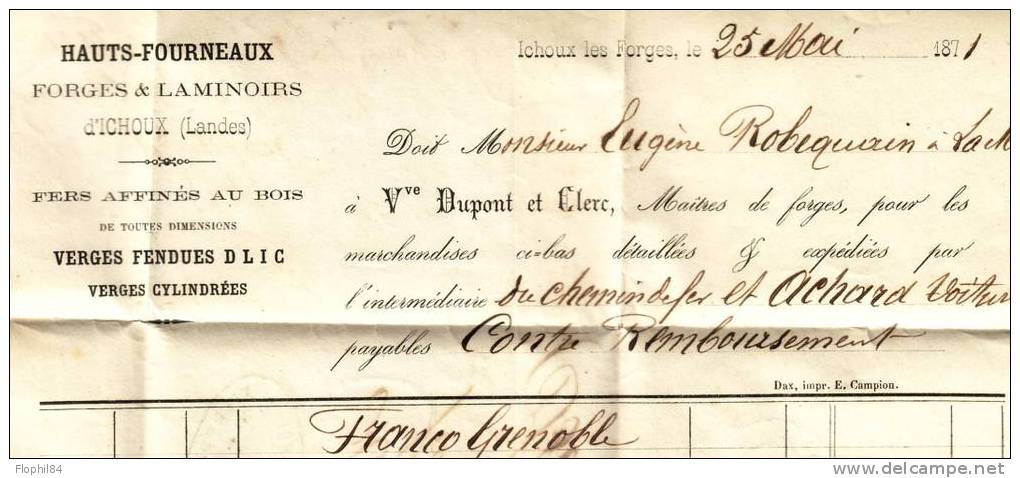 HAUTS-FOURNEAUX
FORGES & LAMINOIRS
d'ICHOUX (Landes)
FERS AFFINÉS AU BOIS
DE TOUTES DIMENSIONS
VERGES FENDUES D L I C
VERGES CYLINDRÉES
Ichoux les Forges, le 25 Mai 1871
Doit Monsieur Eugène Robequain à LaM
à Vve Dupont et Clerc, Maîtres de forges, pour les
marchandises ci-bas détaillées & expédiées par
l'intermédiaire du chemin de fer et Achard Voitur
payables Contre Remboursement
Dax, impr. E. Campion.
Franco Grenoble
Flophil84
delcampe.net